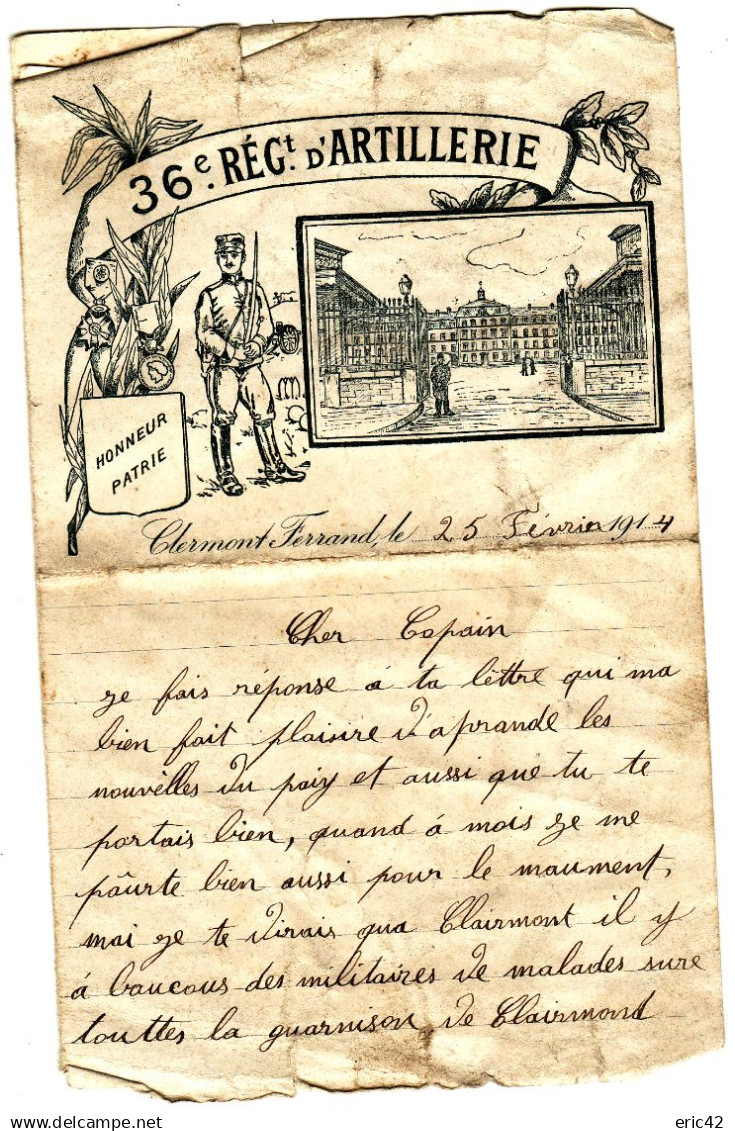 36e. RÉGt. D'ARTILLERIE
HONNEUR
PATRIE
Clermont Ferrand, le 25 Février 1914
Cher Copain
je fais réponse á ta lettre qui ma
bien fait plaisire d'aprande les
nouvèlles du paiy et aussi que tu te
portais bien, quand á mois je me
pôurte bien aussi pour le maument,
mai je te dirais qua Clairmont il y
á baucous des militaires de malades sure
touttes la guarnison de Clairmond
eric42